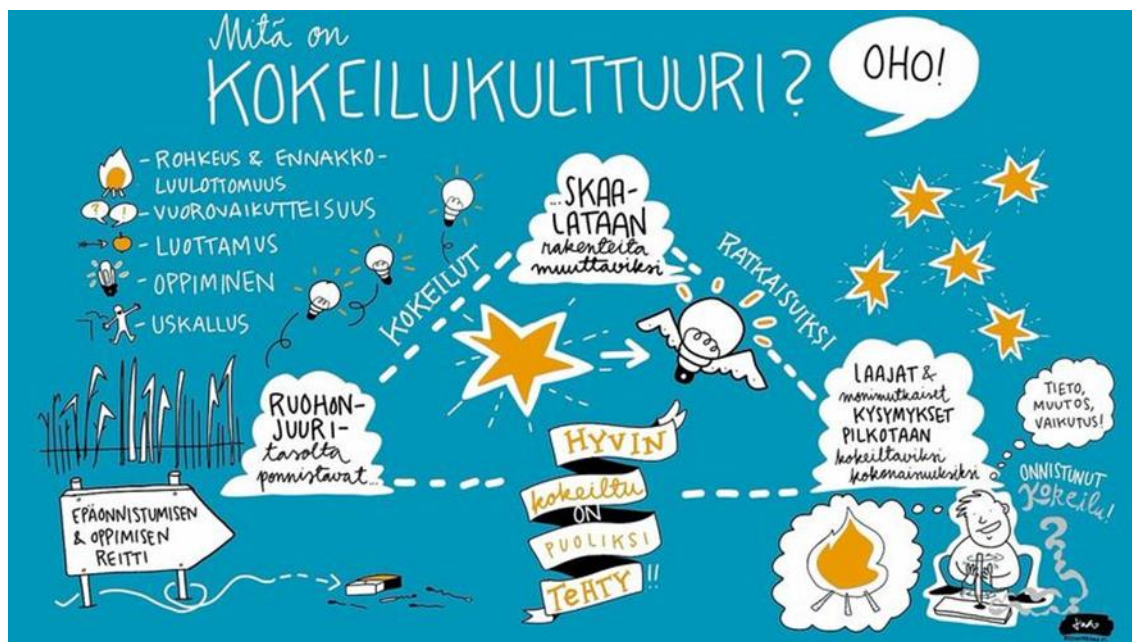 Mitä on
KOKEILUKULTTUURI?
OHO!
- ROHKEUS & ENNAKKO-
LUULOTTOMUUS
- VUOROVAIKUTTEISUUS
- LUOTTAMUS
- OPPIMINEN
- USKALLUS
KOKEILUT
...SKAA-
LATAAN
rakenteita
muuttaviksi
RATKAISUIKSI
RUOHON-
JUURI-
tasolta
ponnistavat...
HYVIN
kokeiltu
ON
PUOLIKSI
TEHTY!!
LAAJAT &
monimutkaiset
KYSYMYKSET
PILKOTAAN
kokeiltaviksi
kokonaisuuksiksi
TIETO,
MUUTOS,
VAIKUTUS!
ONNISTUNUT
Kokeilu!
EPÄONNISTUMISEN
& OPPIMISEN
REITTI
? !